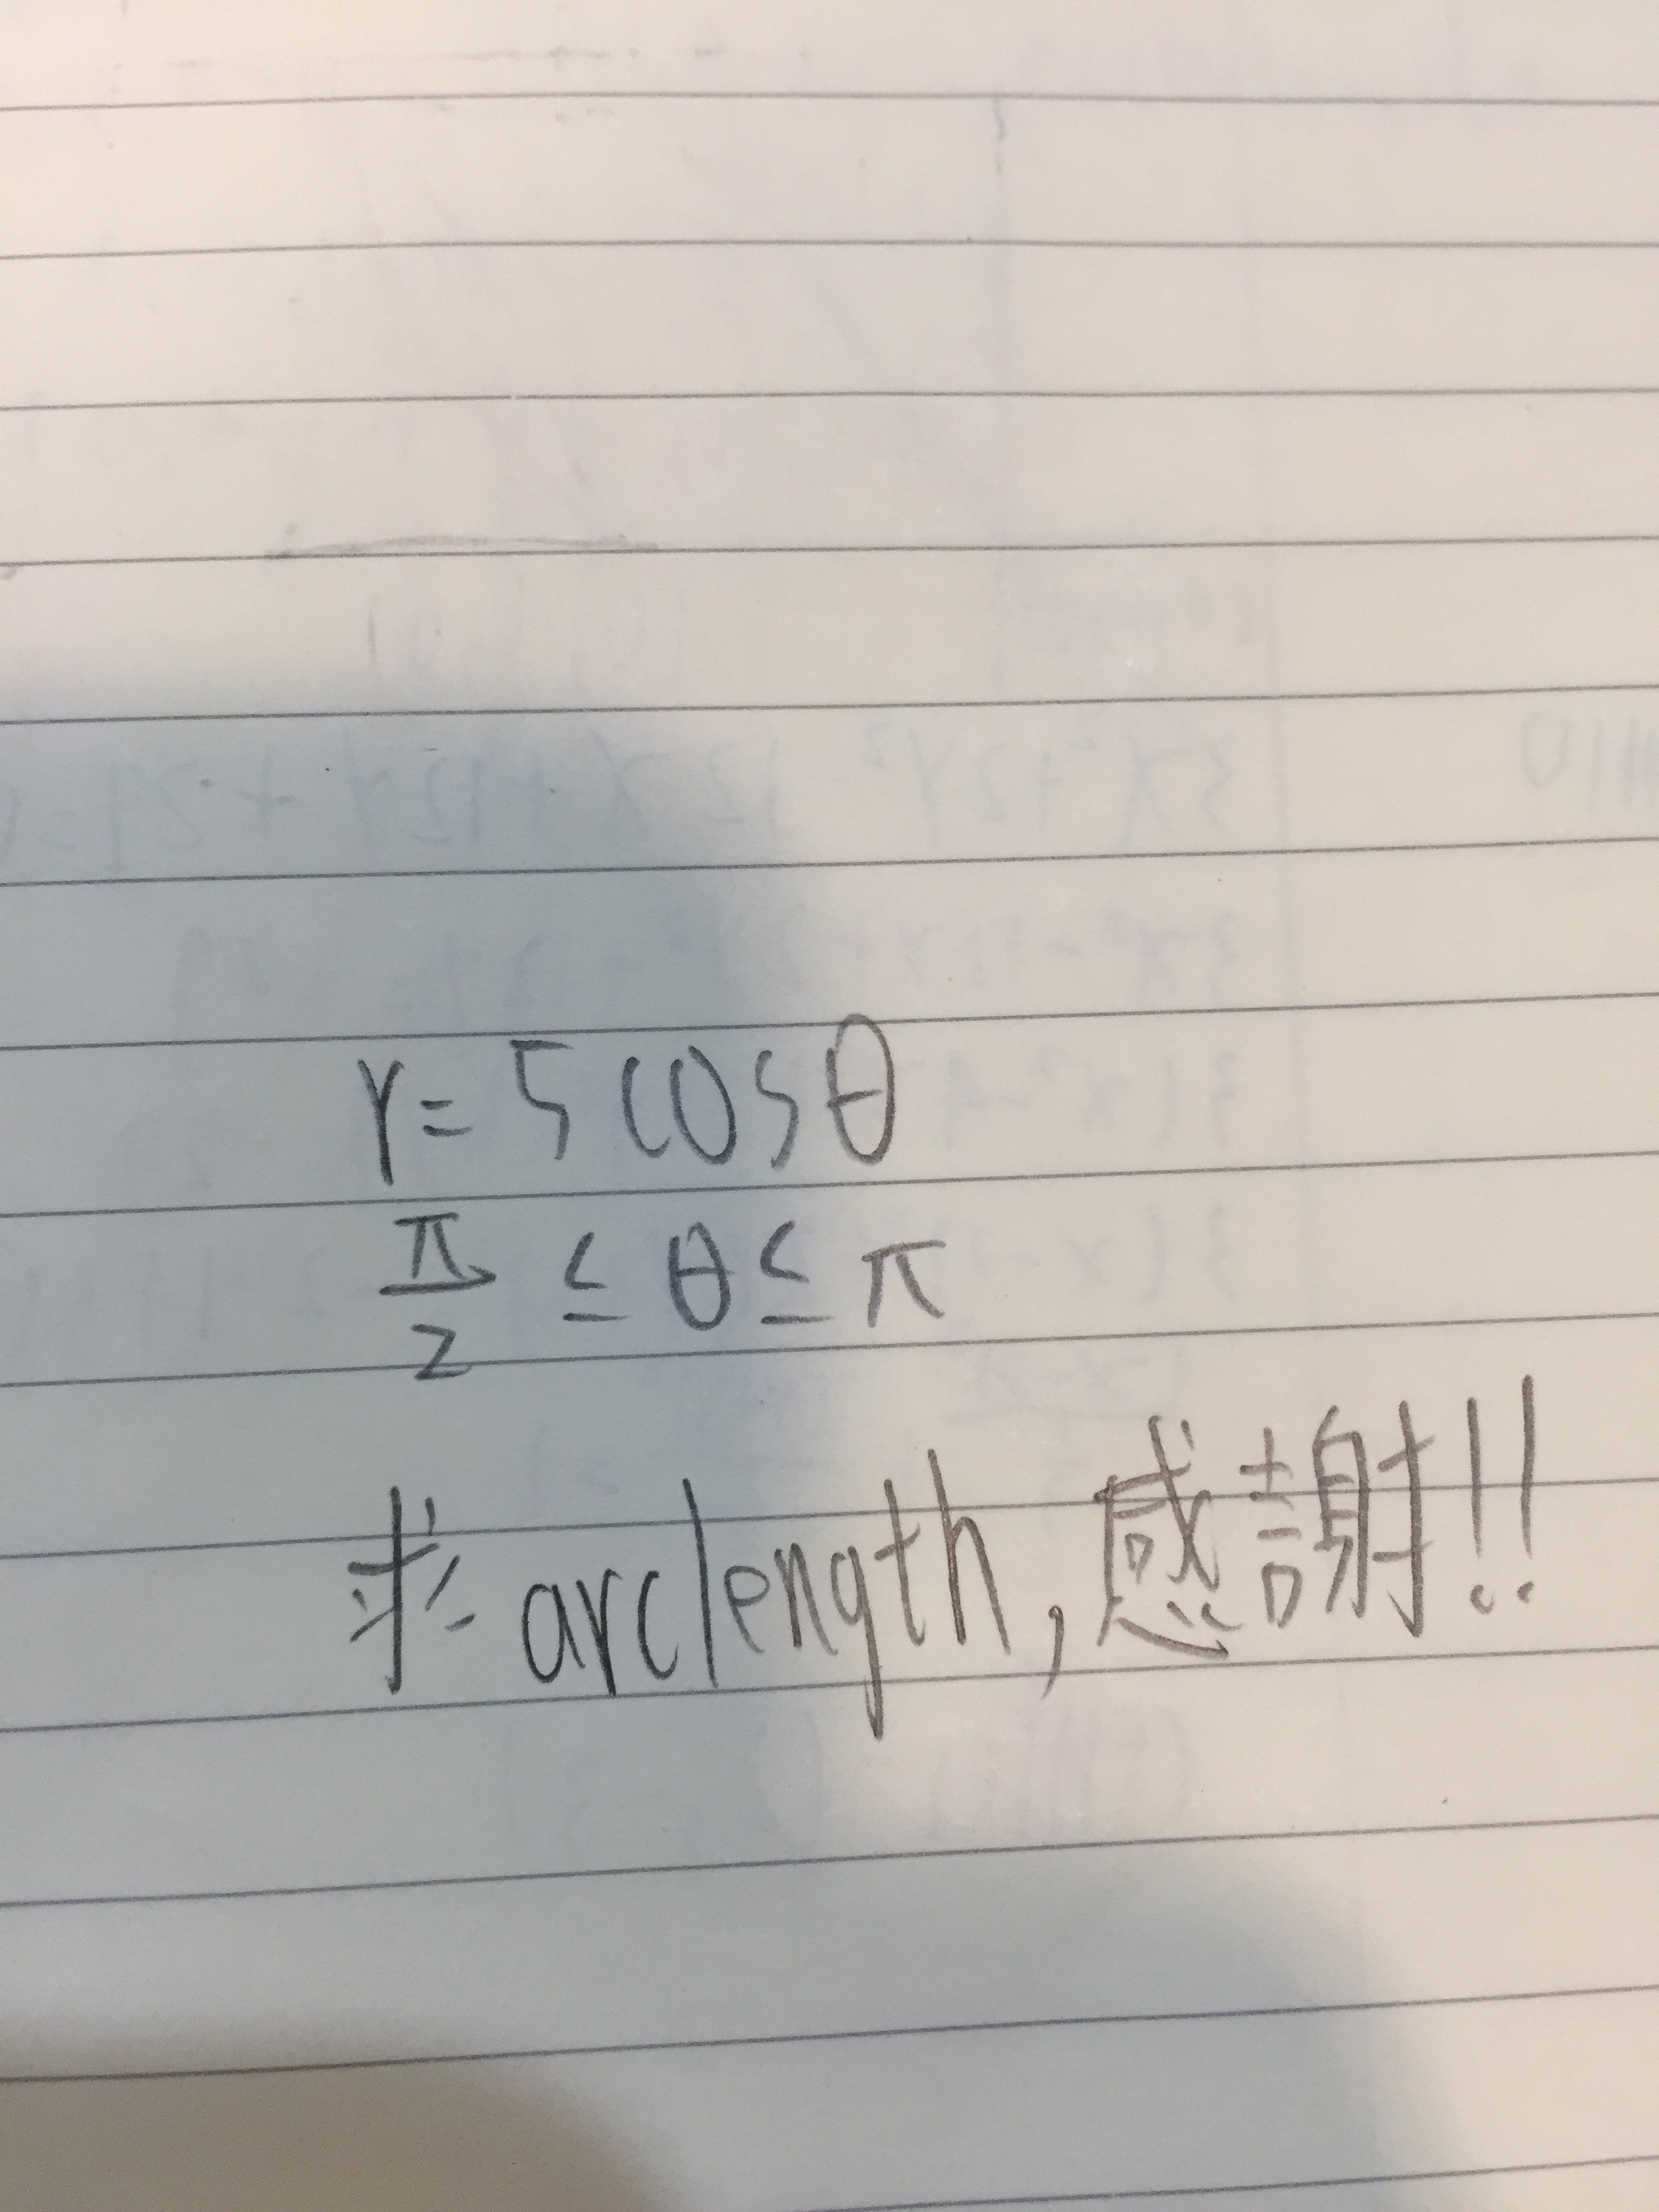 r = 5 cosθ
π/2 ≤ θ ≤ π
求 arc length, 感謝!!